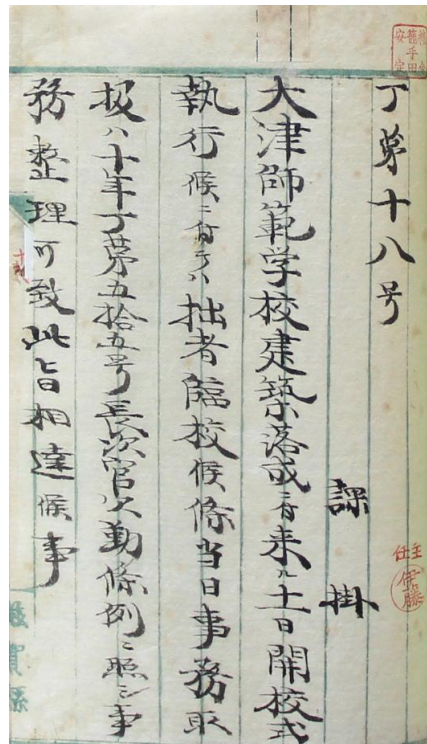 丁第十八号
課掛
大津師範学校建築落成ニ付来ル十一日開校式
執行候ニ付テハ拙者臨校候條当日事務取
扱ハ十年丁第五拾五号長次官欠勤條例ニ照シ事
務整理可致此旨相達候事
主任
伊藤
籠手田安定
滋賀縣